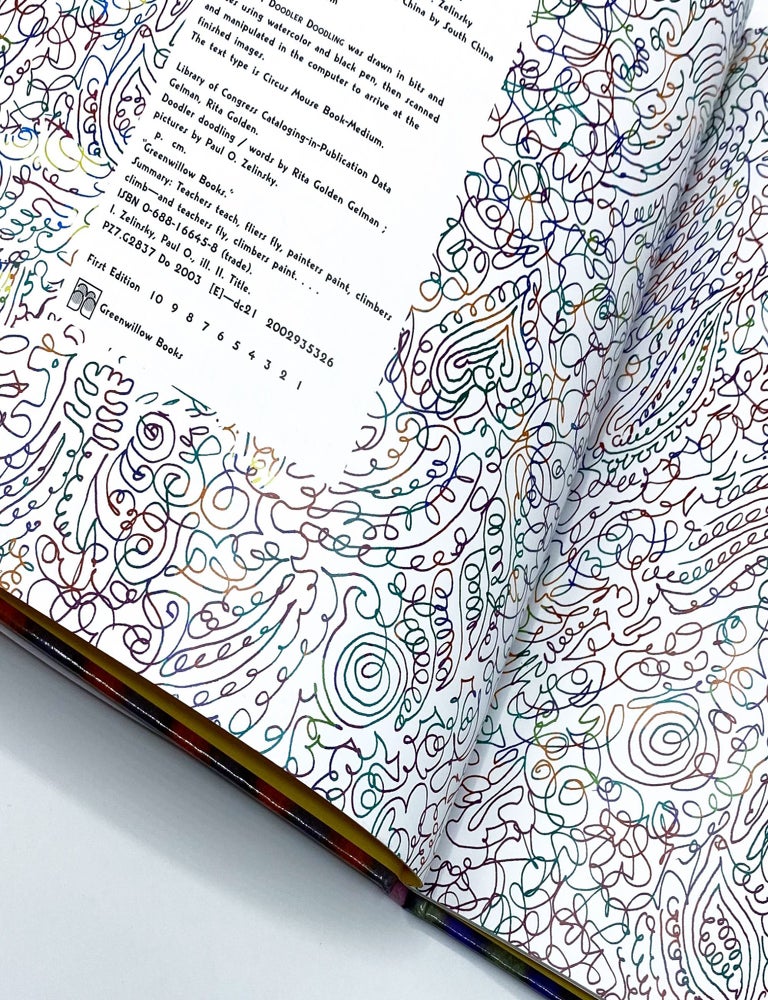 . Zelinsky
China by South China
DOODLER DOODLING was drawn in bits and
using watercolor and black pen, then scanned
and manipulated in the computer to arrive at the
finished images.
The text type is Circus Mouse Book-Medium.
Library of Congress Cataloging-in-Publication Data
Gelman, Rita Golden.
Doodler doodling / words by Rita Golden Gelman ;
pictures by Paul O. Zelinsky.
p. cm.
"Greenwillow Books."
Summary: Teachers teach, fliers fly, painters paint, climbers
climb—and teachers fly, climbers paint. . . .
ISBN 0-688-16645-8 (trade).
I. Zelinsky, Paul O., ill. II. Title.
PZ7.G2837 Do 2003 [E]—dc21 2002935326
First Edition 10 9 8 7 6 5 4 3 2 1
Greenwillow Books